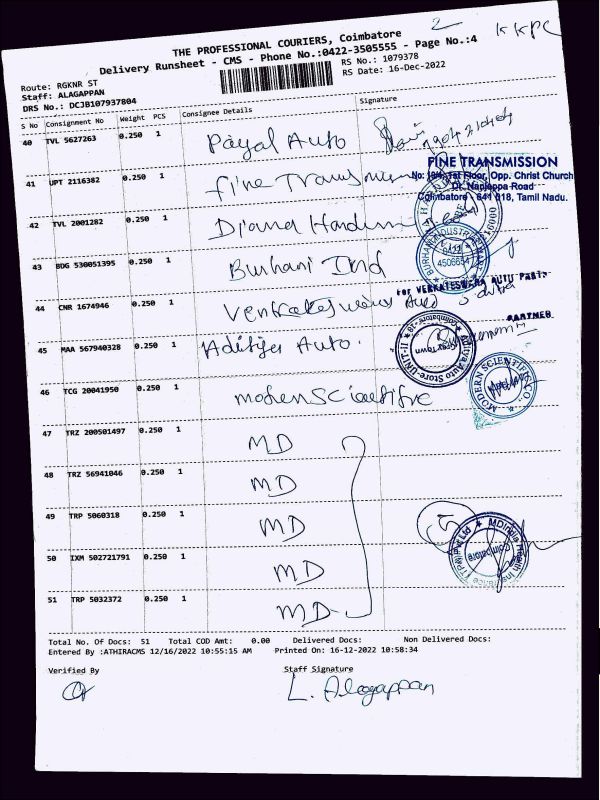 2
KKPC
THE PROFESSIONAL COURIERS, Coimbatore
Delivery Runsheet - CMS - Phone No.:0422-3505555 - Page No.:4
Route: RGKNR ST
Staff: ALAGAPPAN
DRS No.: DCJB107937804
RS No.: 1079378
RS Date: 16-Dec-2022
S No Consignment No Weight PCS Consignee Details Signature
40 TVL 5627263 0.250 1 Payal Auto
FINE TRANSMISSION
1st Floor, Opp. Christ Church
Dr. Nanjappa Road
Coimbatore - 641 018, Tamil Nadu.
41 UPT 2116382 0.250 1 Fine Transmission
42 TVL 2001282 0.250 1 Diana
43 BDG 530051395 0.250 1 Burhani Ind
For VENKATESWARA AUTO PARTS
PARTNER
44 CNR 1674946 0.250 1
45 MAA 567940328 0.250 1 Aditya Auto.
Aditya Auto Store-UNIT-II
Coimbatore-18
46 TCG 20041950 0.250 1 modern Scientific
MODERN SCIENTIFIC CO.,
47 TRZ 200501497 0.250 1 MD
48 TRZ 56941046 0.250 1 MD
49 TRP 5060318 0.250 1 MD
5
50 IXM 502721791 0.250 1 MD
Coimbatore
51 TRP 5032372 0.250 1 MD
Total No. Of Docs: 51 Total COD Amt: 0.00 Delivered Docs: Non Delivered Docs:
Entered By :ATHIRACMS 12/16/2022 10:55:15 AM Printed On: 16-12-2022 10:58:34
Verified By Staff Signature
L. Alagappan